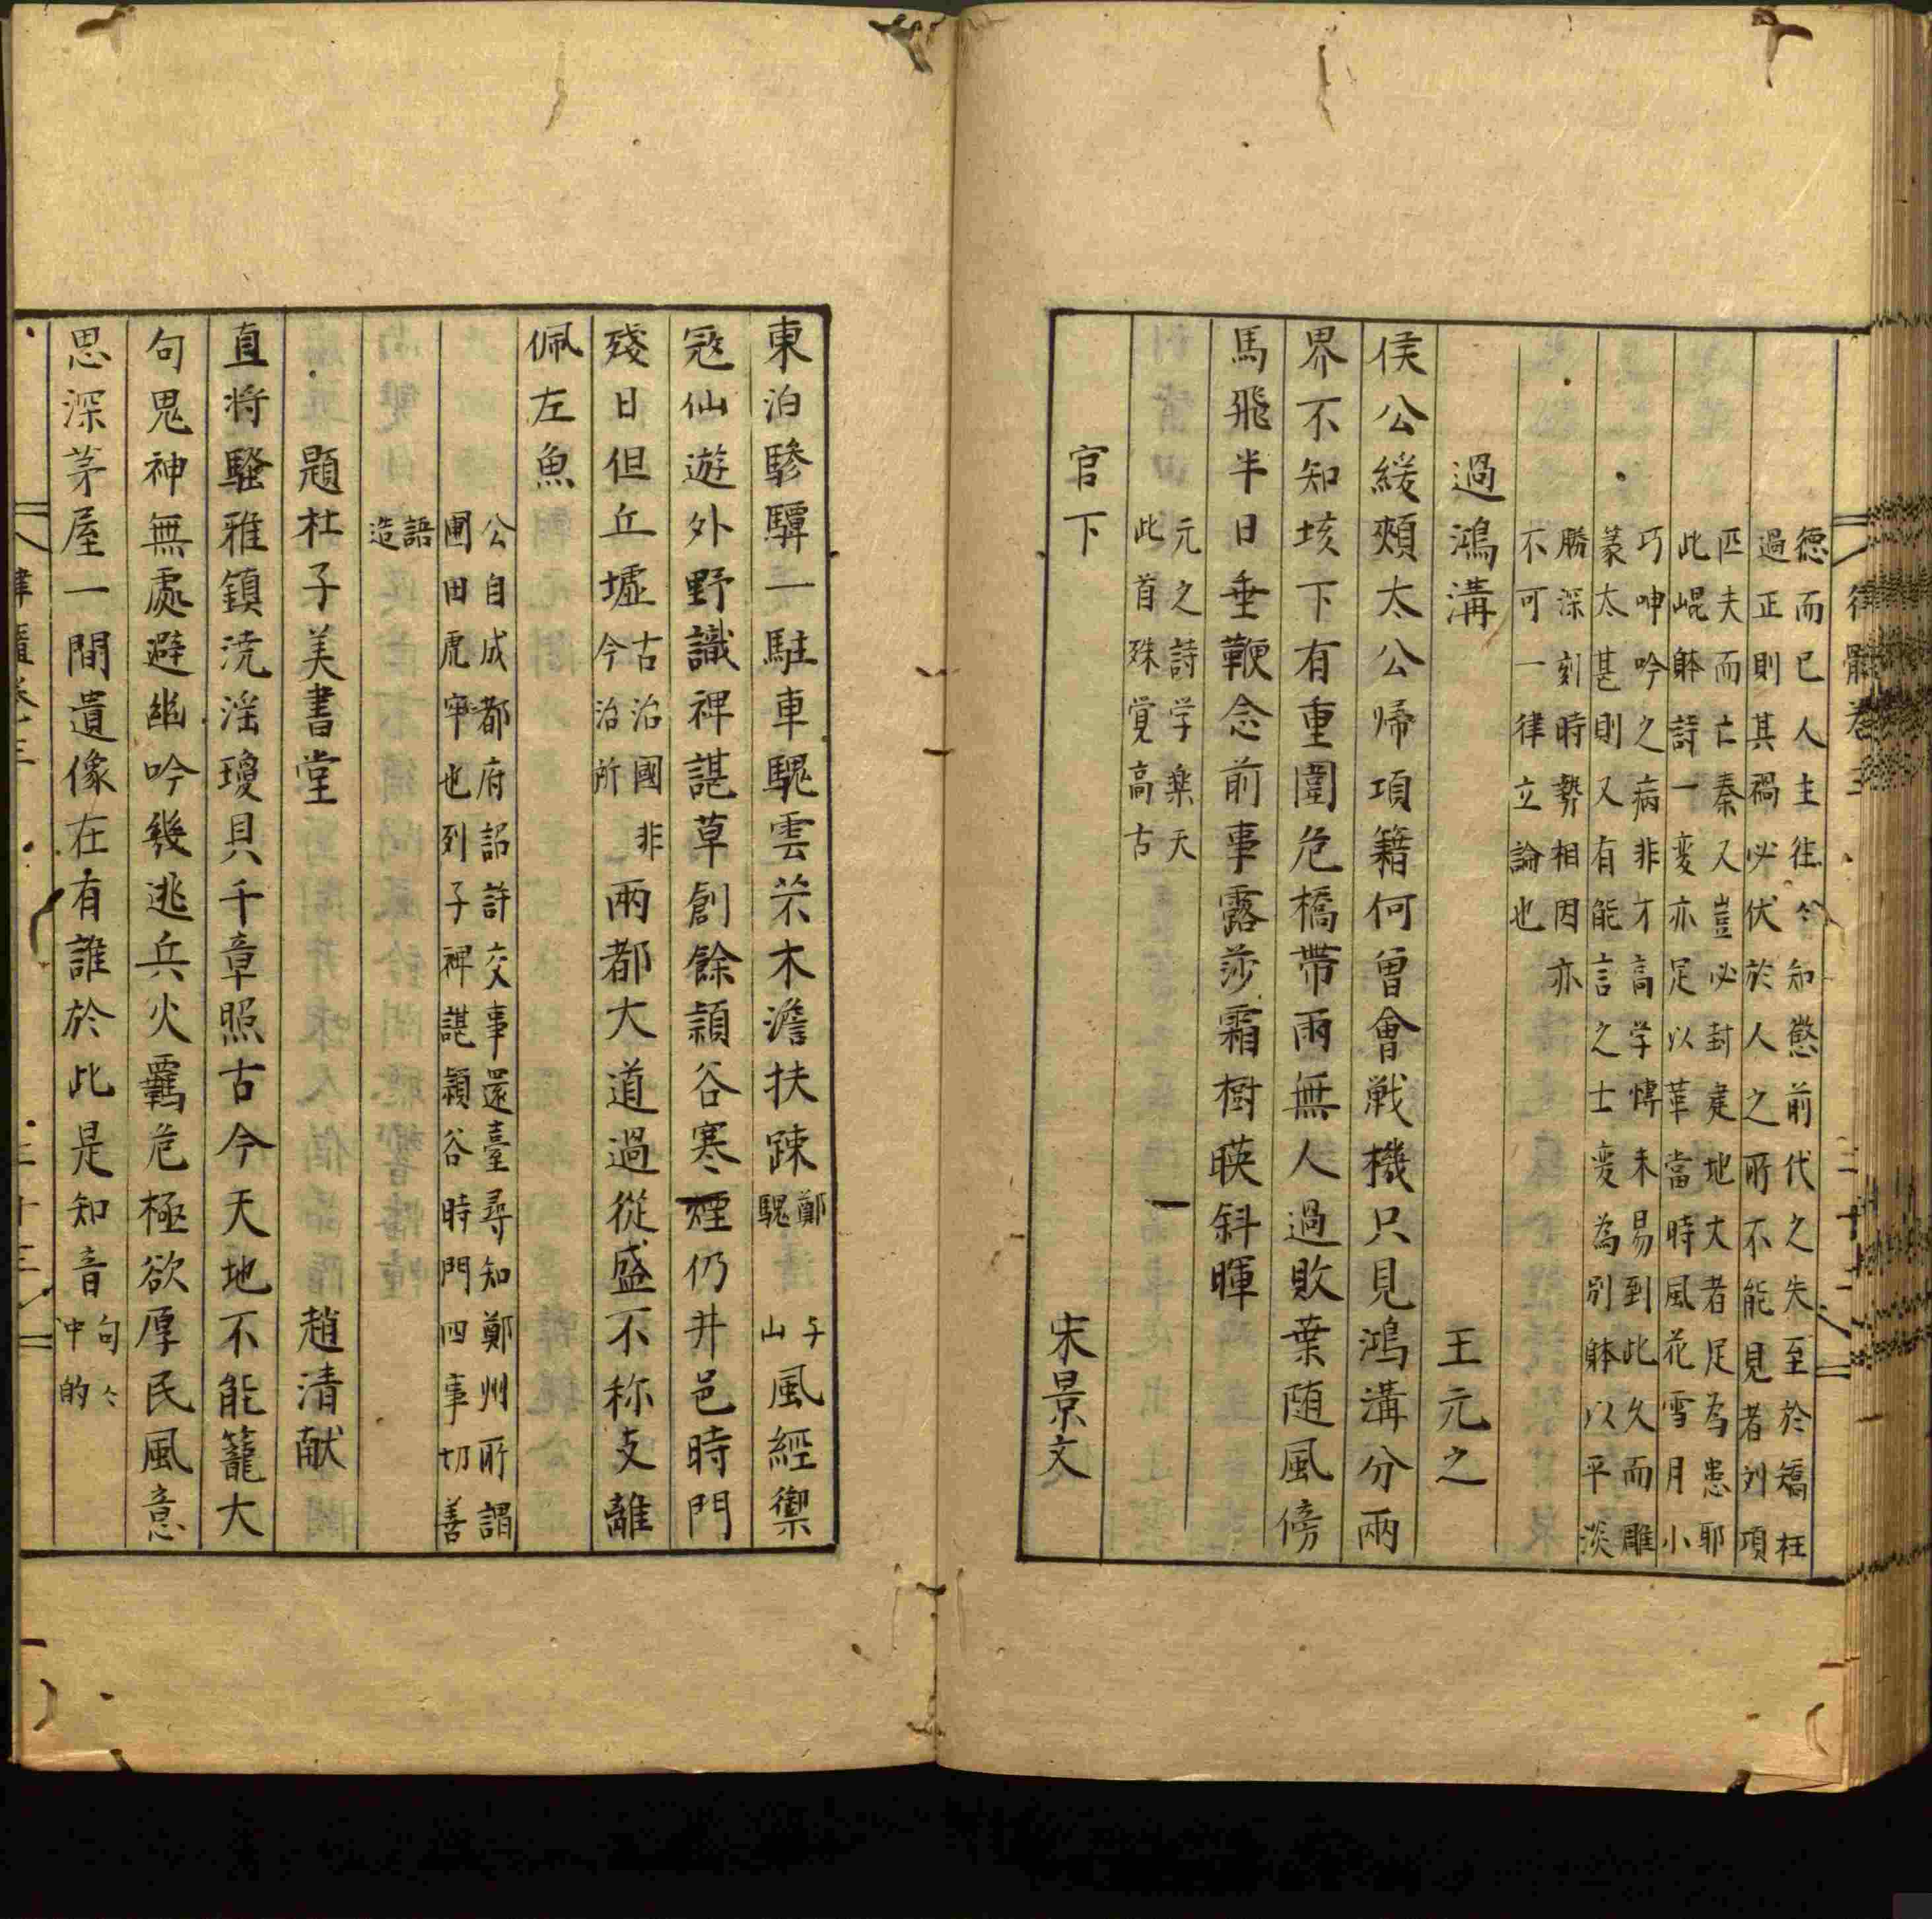 律髓卷三
德而已人主往々知懲前代之失至於矯枉
過正則其禍必伏於人之所不能見者刘項
匹夫而亡秦又豈必封建地大者足為患耶
此崐躰詩一変亦足以革當時風花雪月小
巧呻吟之病非才高学博未易到此久而雕
篆太甚則又有能言之士変為別躰以平淡
勝深刻時勢相因亦
不可一律立論也
過鴻溝 王元之
侯公緩頰太公帰項籍何曾會戦機只見鴻溝分兩
界不知垓下有重圍危橋帶雨無人過敗葉随風傍
馬飛半日垂鞭念前事露莎霜樹暎斜暉
元之詩学楽天
此首殊覚高古
官下 宋景文
東泊驂驔一駐車騩雲苶木澹扶踈鄭騩山 与風經禦
冦仙遊外野識禆諶草創餘潁谷寒煙仍井邑時門
殘日但丘墟古治國非今治所兩都大道過從盛不称支離
佩左魚
公自成都府詔許交事還臺尋知鄭州所謂
圃田虎牢也列子禆諶潁谷時門四事切善
造語
題杜子美書堂 趙清献
直将騷雅鎮澆淫瓊貝千章照古今天地不能籠大
句鬼神無處避幽吟幾逃兵火羈危極欲厚民風意
思深茅屋一間遺像在有誰於此是知音句々中的
律髓卷三 三十三